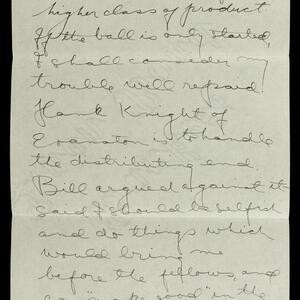 higher class of product
If the ball is only started,
I shall consider my
trouble well repaid.
Hank Knight of
Evanston is to handle
the distributing end.
Bill argued against it
said I should be selfish
and do things which
would bring me
before the fellows, and
"make good" in the